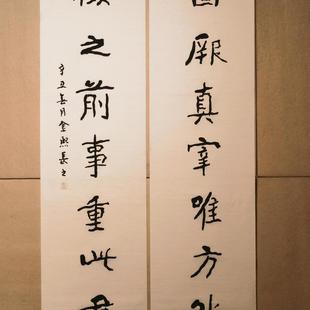 厥真宰唯方外
之前事重此君
辛丑
月金熙長之